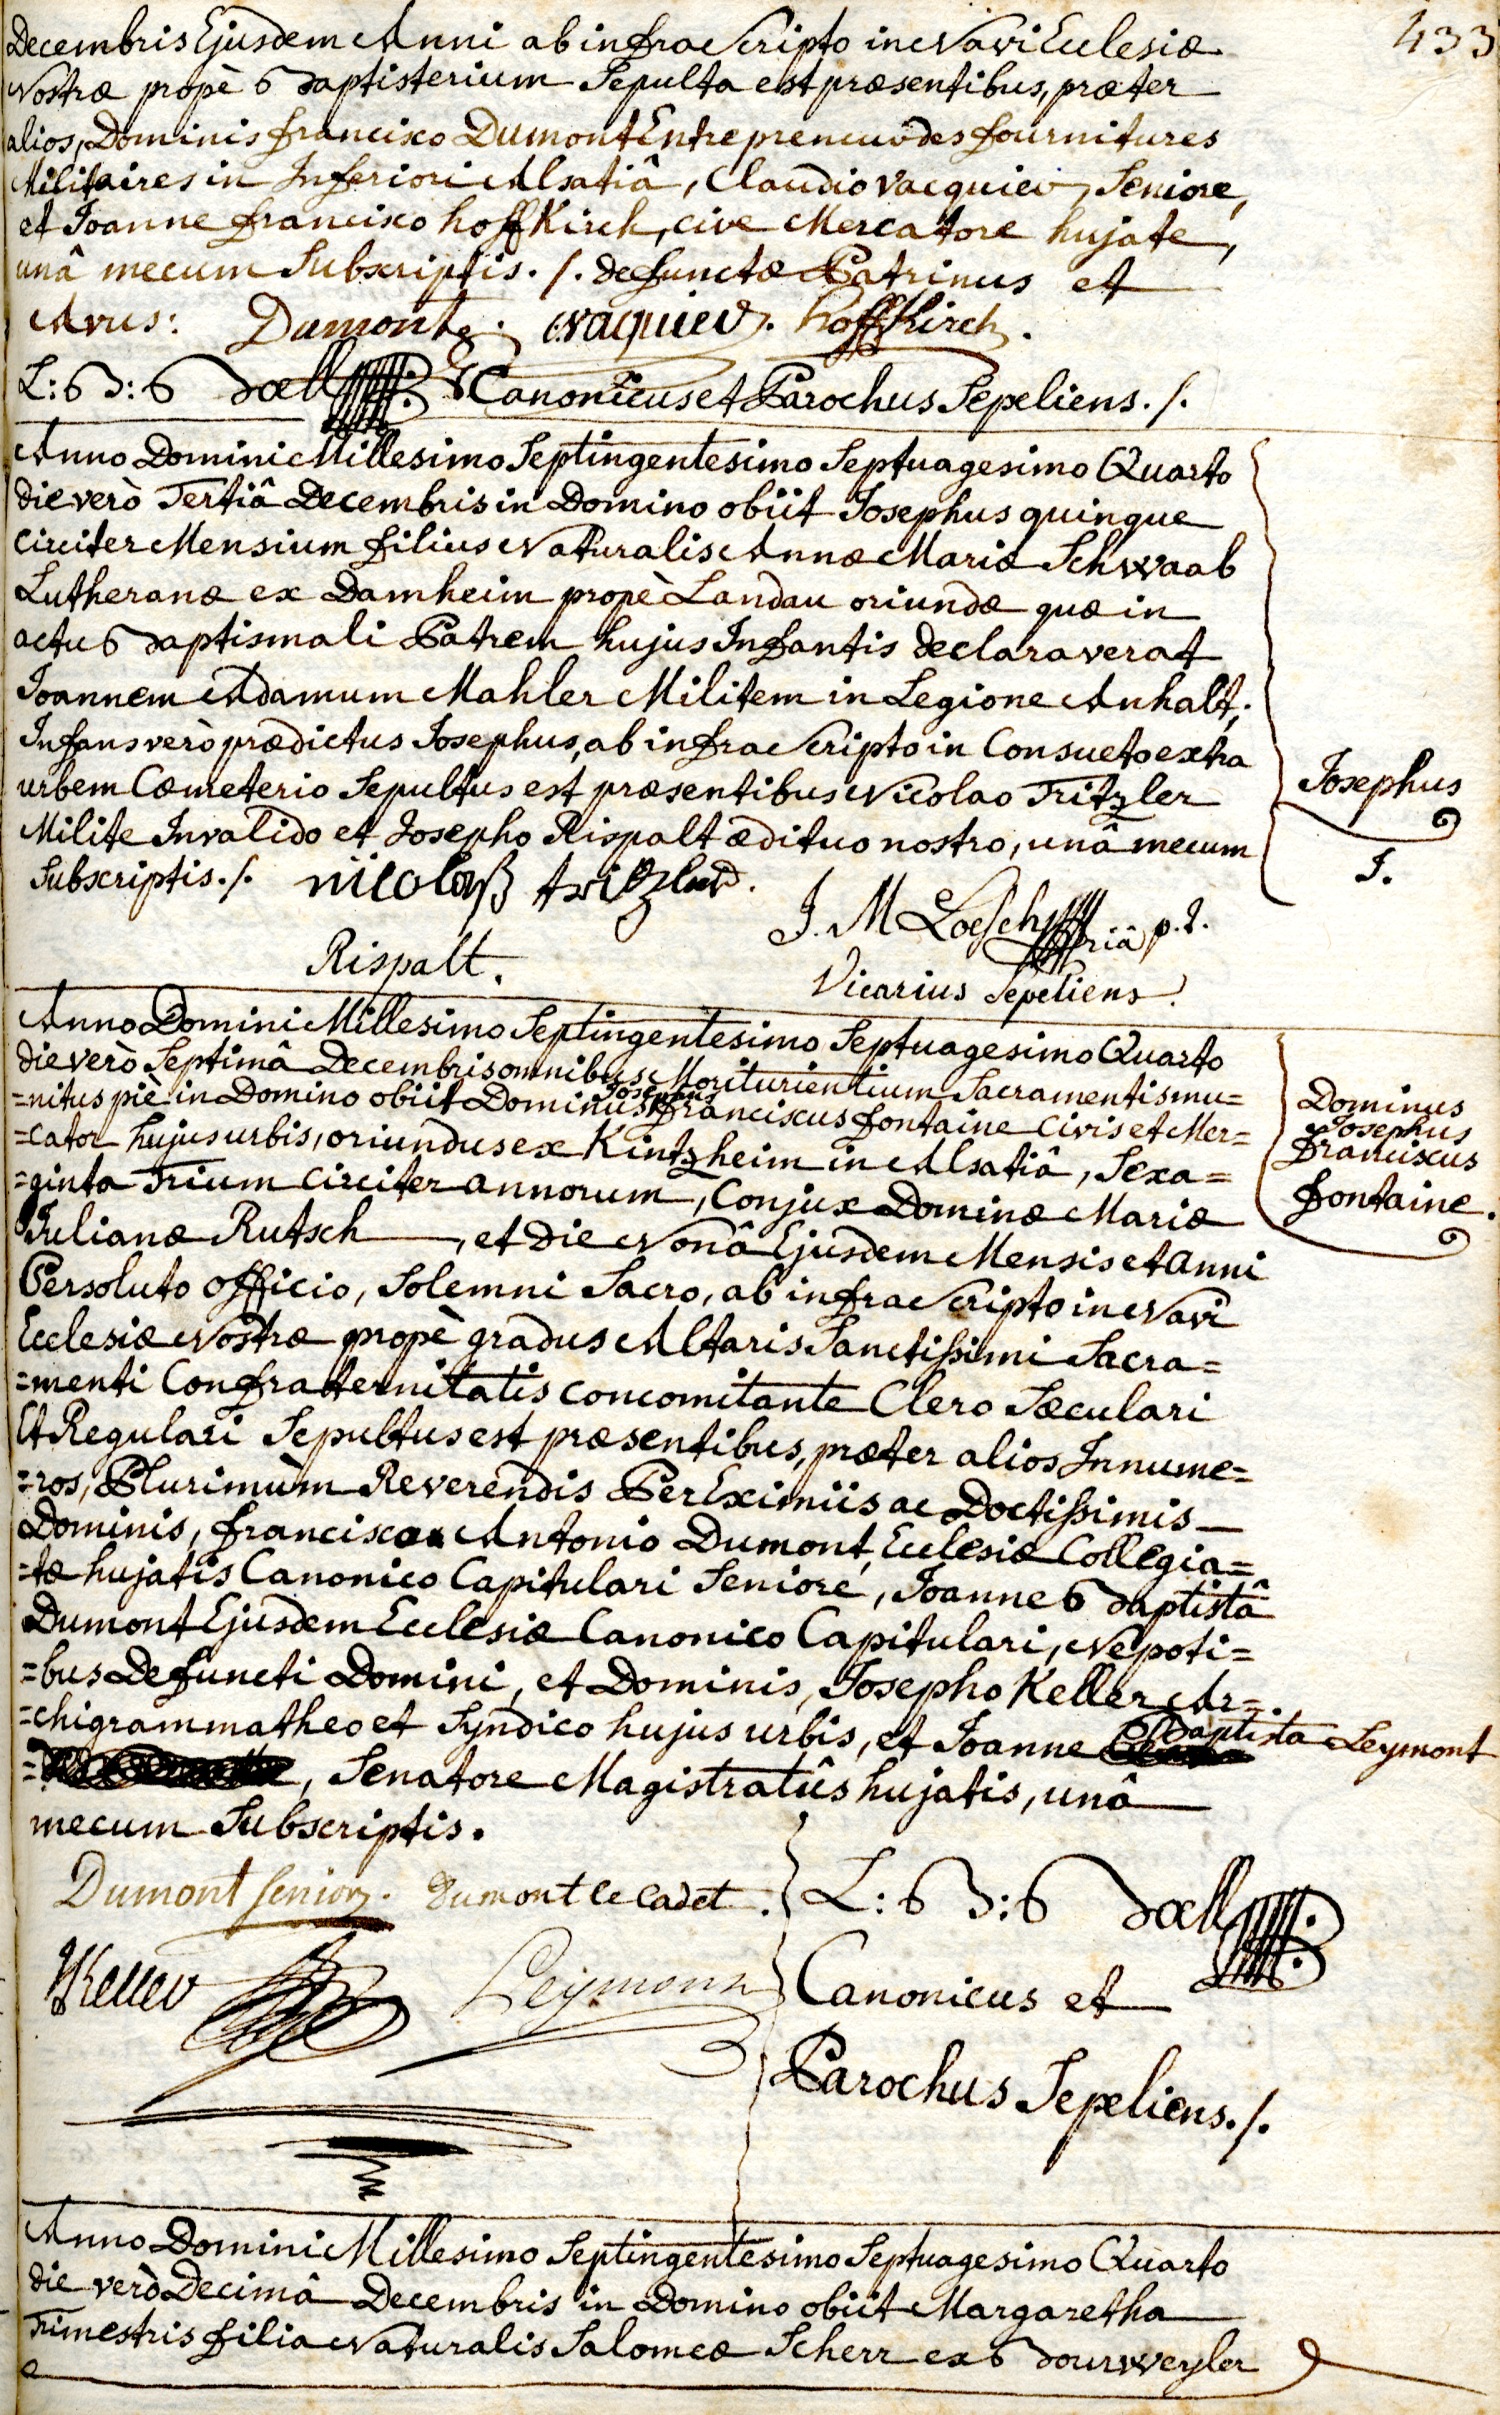 433
Decembris Ejusdem Anni ab infra Scripto in Navi Ecclesiæ
Nostræ propè Baptisterium Sepulta est præsentibus, præter
alios, Dominis francisco Dumont Entrepreneur des fournitures
Militaires in Inferiori Alsatiâ, Claudio Vacquier, Seniore,
et Joanne francisco hoffKirch, cive Mercatore hujate,
unâ mecum Subscriptis ./. defunctæ Patrinus et
Avus: Dumont. vaquier. hoffKirch.
L: B: Boell Canonicus et Parochus Sepeliens ./.
Anno Domini Millesimo Septingentesimo Septuagesimo Quarto
die verò Tertiâ Decembris in Domino obiit Josephus quinque
circiter Mensium filius Naturalis Annæ Mariæ Schwaab
Lutheranæ ex Damheim propè Landau oriundæ quæ in
actu Baptismali Patrem hujus Infantis declaraverat
Joannem Adamum Mahler Militem in Legione Anhalt;
Infans verò prædictus Josephus, ab infra Scripto in Consueto extra
urbem Cæmeterio Sepultus est præsentibus Nicolao Tritzler
Milite Invalido et Josepho Rispalt ædituo nostro, unâ mecum
Subscriptis ./. nicolaß tritzler.
Josephus
J.
J. M Loesch p. t.
Rispalt.
Vicarius Sepeliens.
Anno Domini Millesimo Septingentesimo Septuagesimo Quarto
die verò Septimâ Decembris omnibus Moriturientium Sacramentis mu=
=nitus piè in Domino obiit Dominus Josephus franciscus fontaine Civis et Mer=
=cator hujus urbis, oriundus ex Kintzheim in Alsatiâ, Sexa=
=ginta Trium circiter annorum, Conjux Dominæ Mariæ
Julianæ Rutsch, et die Nonâ Ejusdem Mensis et anni
Dominus
Josephus
franciscus
fontaine.
Persoluto officio, Solemni Sacro, ab infra Scripto in Navi
Ecclesiæ Nostræ propè gradus Altaris Sanctissimi Sacra=
=menti Confraternitatis concomitante Clero Sæculari
Et Regulari Sepultus est præsentibus, præter alios Innume=
=ros, Plurimùm Reverendis PerEximiis ac Doctissimis
Dominis, francisco Antonio Dumont, Ecclesiæ Collegia=
=tæ hujatis Canonico Capitulari Seniore, Joanne Baptistâ
Dumont Ejusdem Ecclesiæ Canonico Capitulari, Nepoti=
=bus Defuncti Domini, et Dominis, Josepho Keller Ar=
=chigrammatheo et Syndico hujus urbis, et Joanne Baptista Leymont
, Senatore Magistratûs hujatis, unâ
mecum Subscriptis.
Dumont Senior. Dumont le cadet.
L: B: Boell
Keller Leymont
Canonicus et
Parochus Sepeliens ./.
Anno Domini Millesimo Septingentesimo Septuagesimo Quarto
die verò Decimâ Decembris in Domino obiit Margaretha
Trimestris filia Naturalis Salomeæ Scherr ex Bourxweyler